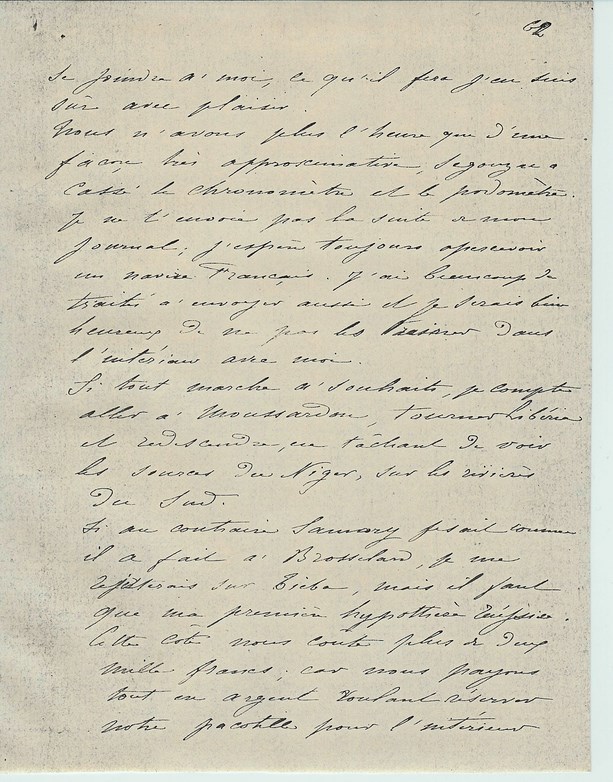 62
se joindre à moi, ce qu'il fera j'en suis
sûr avec plaisir.
Nous n'avons plus l'heure que d'une
façon très approximative, Segonzac a
cassé le chronomètre et le podomètre.
Je ne t'envoie pas la suite de mon
journal; j'espère toujours apercevoir
un navire Français. J'ai beaucoup de
traités à envoyer aussi et je serais bien
heureux de ne pas les trainer dans
l'intérieur avec moi.
Si tout marche à souhaits, je compte
aller à Moussardou, tourner Libéria
et redescendre, en tâchant de voir
les sources du Niger, sur les rivières
du Sud.
Si au contraire Samory fesait comme
il a fait à Brosselard, je me
rejetterais sur Tieba, mais il faut
que ma première hypothèse réussisse.
Cette côte nous coute plus de deux
mille francs; car nous payons
tout en argent voulant réserver
notre pacotille pour l'intérieur